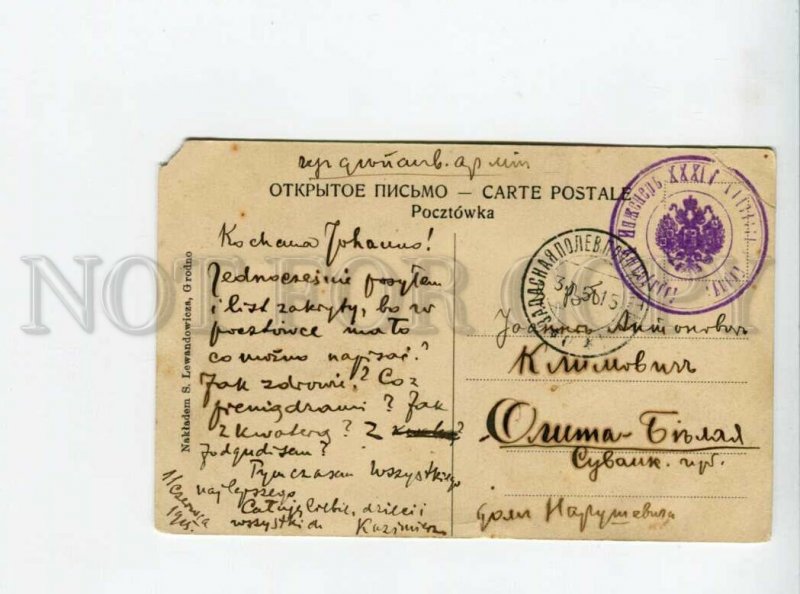 ОТКРЫТОЕ ПИСЬМО — CARTE POSTALE
Pocztówka
Nakładem S. Lewandowicza, Grodno
Kochana Johanno!
Jednocześnie posyłam
i list zakryty, bo w
pocztówce mało
co można napisać?
Jak zdrowie? Co z
pieniądzami? Jak
z kwaterą? Z
Tymczasem wszystkiego
najlepszego
Całuję Ciebie, dzieci i
wszystkich Kazimierz
11 czerwca
1915.
ЗАПАСНАЯ ПОЛЕВ.
Инженеръ XXXIV
Антонович
Климовичъ
Олита-Бѣлая
Сувалк. губ.
домъ Нарушевича
NOT FOR COPY